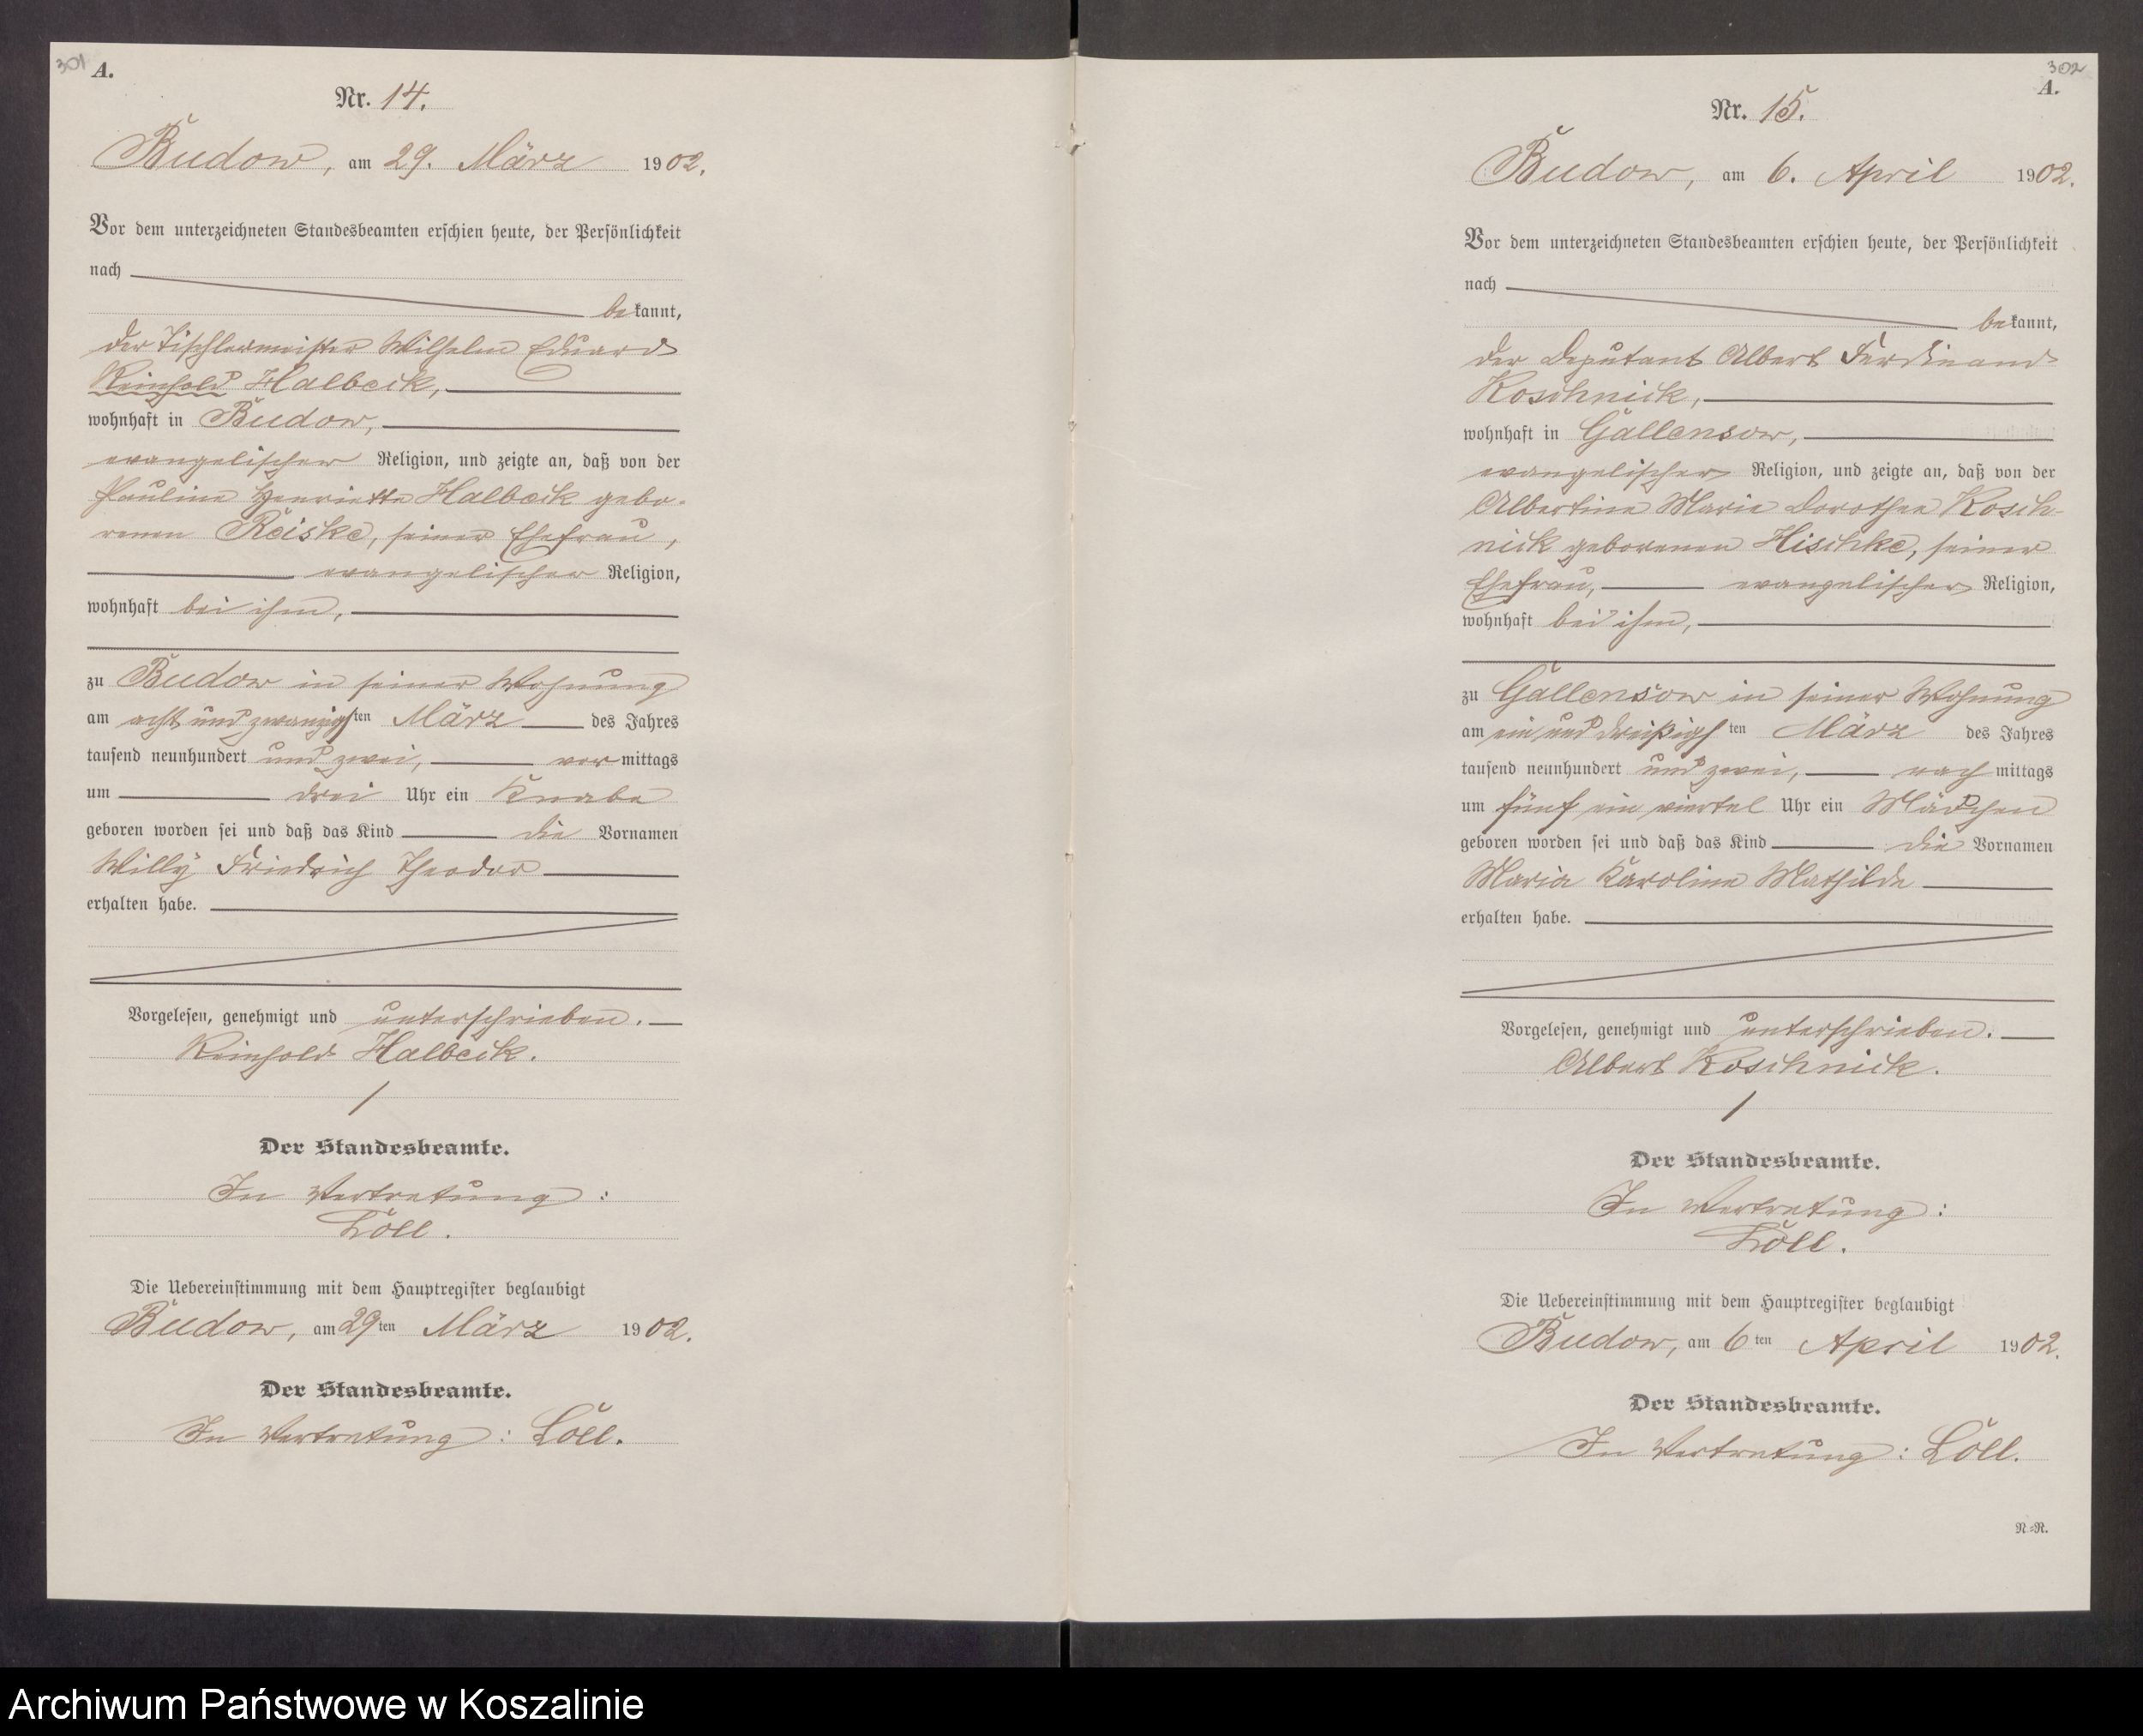 301 A.
Nr. 14.
Budow, am 29. März 1902.
Vor dem unterzeichneten Standesbeamten erschien heute, der Persönlichkeit
nach
bekannt,
der Tischlermeister Wilhelm Eduard
Reinhold Halbeck,
wohnhaft in Budow,
evangelischer Religion, und zeigte an, daß von der
Pauline Henriette Halbeck gebo-
renen Reiske, seiner Ehefrau,
evangelischer Religion,
wohnhaft bei ihm,
zu Budow in seiner Wohnung
am acht und zwanzigsten März des Jahres
tausend neunhundert und zwei, vormittags
um drei Uhr ein Knabe
geboren worden sei und daß das Kind die Vornamen
Willy Friedrich Theodor
erhalten habe.
Vorgelesen, genehmigt und unterschrieben.
Reinhold Halbeck.
Der Standesbeamte.
In Vertretung:
Löll.
Die Uebereinstimmung mit dem Hauptregister beglaubigt
Budow, am 29ten März 1902.
Der Standesbeamte.
In Vertretung: Löll.
302
A.
Nr. 15.
Budow, am 6. April 1902.
Vor dem unterzeichneten Standesbeamten erschien heute, der Persönlichkeit
nach
bekannt,
der Deputant Albert Ferdinand
Koschnick,
wohnhaft in Gallensow,
evangelischer Religion, und zeigte an, daß von der
Albertine Marie Dorothee Kosch-
nick geborenen Hischke, seiner
Ehefrau, evangelischer Religion,
wohnhaft bei ihm,
zu Gallensow in seiner Wohnung
am ein und dreißigsten März des Jahres
tausend neunhundert und zwei, nachmittags
um fünf ein viertel Uhr ein Mädchen
geboren worden sei und daß das Kind die Vornamen
Maria Karoline Mathilde
erhalten habe.
Vorgelesen, genehmigt und unterschrieben.
Albert Koschnick.
Der Standesbeamte.
In Vertretung:
Löll.
Die Uebereinstimmung mit dem Hauptregister beglaubigt
Budow, am 6ten April 1902.
Der Standesbeamte.
In Vertretung: Löll.
N.=R.
Archiwum Państwowe w Koszalinie